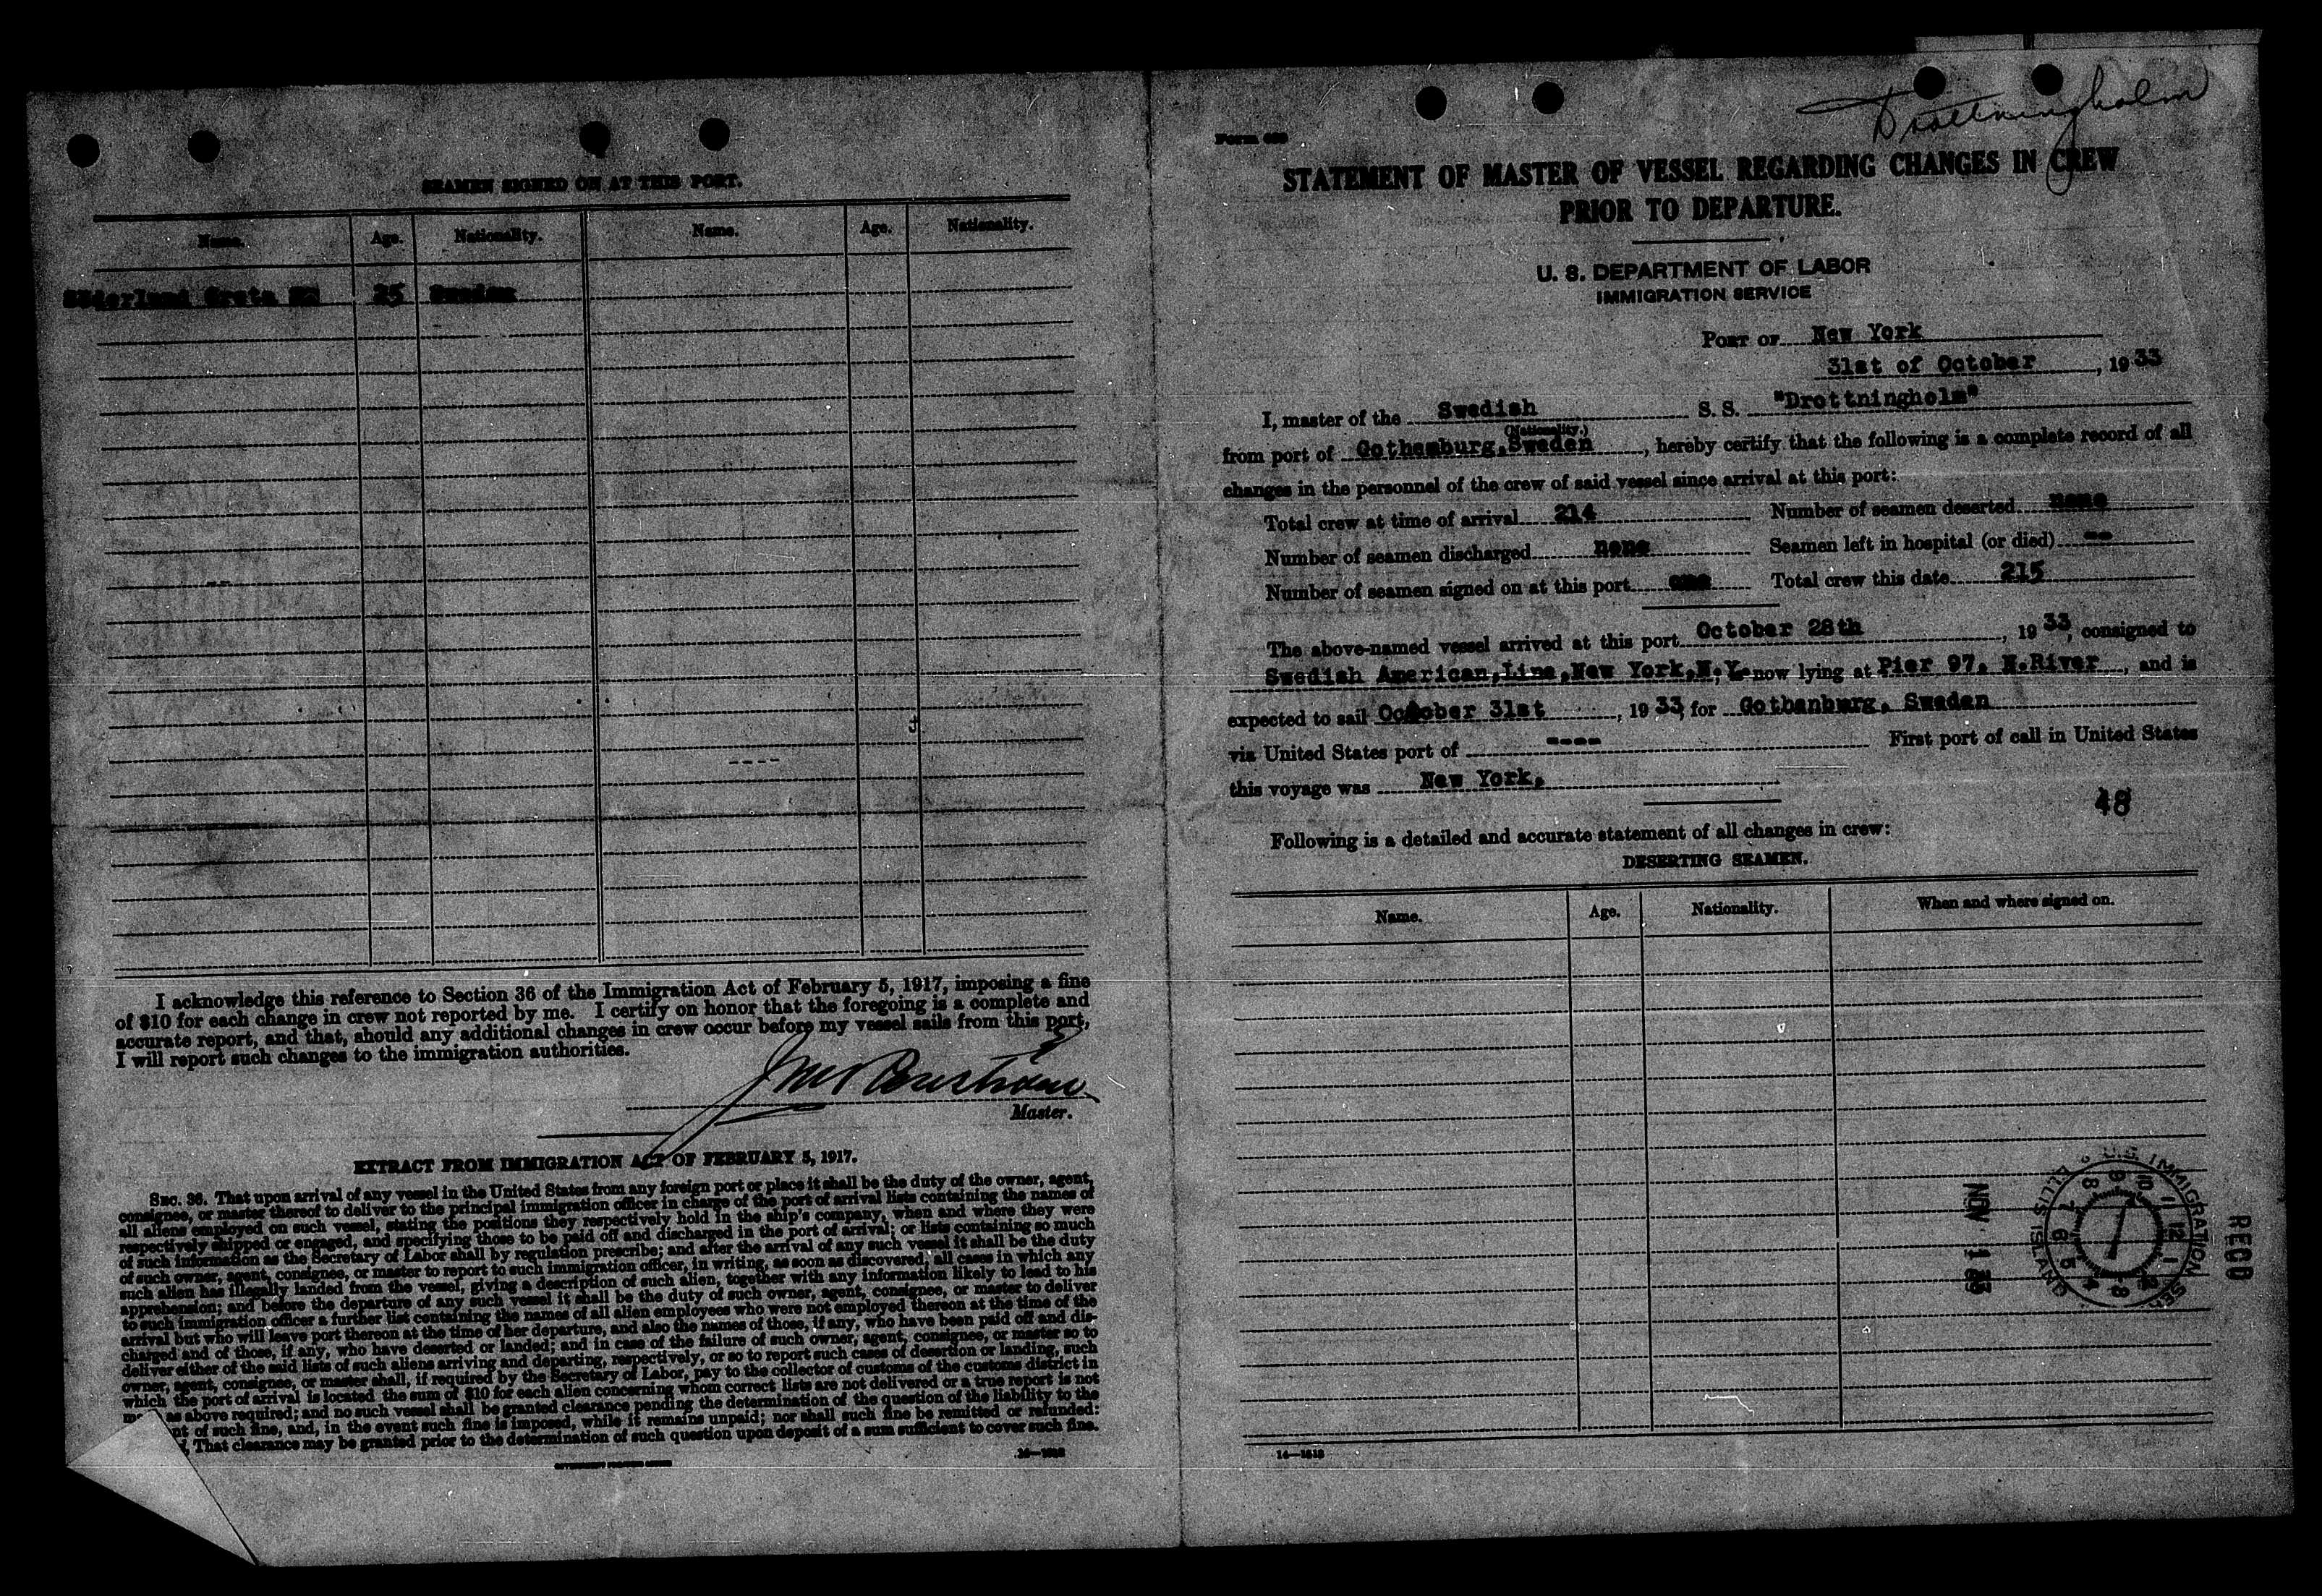 SEAMEN SIGNED ON AT THIS PORT.
Name. Age. Nationality. Name. Age. Nationality.
Söderlund Greta 25 Sweden
--
----
I acknowledge this reference to Section 36 of the Immigration Act of February 5, 1917, imposing a fine
of $10 for each change in crew not reported by me. I certify on honor that the foregoing is a complete and
accurate report, and that, should any additional changes in crew occur before my vessel sails from this port,
I will report such changes to the immigration authorities.
Master.
EXTRACT FROM IMMIGRATION ACT OF FEBRUARY 5, 1917.
SEC. 36. That upon arrival of any vessel in the United States from any foreign port or place it shall be the duty of the owner, agent,
consignee, or master thereof to deliver to the principal immigration officer in charge of the port of arrival lists containing the names of
all aliens employed on such vessel, stating the positions they respectively hold in the ship's company, when and where they were
respectively shipped or engaged, and specifying those to be paid off and discharged in the port of arrival; or lists containing so much
of such information as the Secretary of Labor shall by regulation prescribe; and after the arrival of any such vessel it shall be the duty
of such owner, agent, consignee, or master to report to such immigration officer, in writing, as soon as discovered, all cases in which any
such alien has illegally landed from the vessel, giving a description of such alien, together with any information likely to lead to his
apprehension; and before the departure of any such vessel it shall be the duty of such owner, agent, consignee, or master to deliver
to such immigration officer a further list containing the names of all alien employees who were not employed thereon at the time of the
arrival but who will leave port thereon at the time of her departure, and also the names of those, if any, who have been paid off and dis-
charged and of those, if any, who have deserted or landed; and in case of the failure of such owner, agent, consignee, or master so to
deliver either of the said lists of such aliens arriving and departing, respectively, or so to report such cases of desertion or landing, such
owner, agent, consignee, or master shall, if required by the Secretary of Labor, pay to the collector of customs of the customs district in
which the port of arrival is located the sum of $10 for each alien concerning whom correct lists are not delivered or a true report is not
as above required; and no such vessel shall be granted clearance pending the determination of the question of the liability to the
nt of such fine, and, in the event such fine is imposed, while it remains unpaid; nor shall such fine be remitted or refunded:
That clearance may be granted prior to the determination of such question upon deposit of a sum sufficient to cover such fine.
Drottningholm
Form
STATEMENT OF MASTER OF VESSEL REGARDING CHANGES IN CREW
PRIOR TO DEPARTURE.
U. S. DEPARTMENT OF LABOR
IMMIGRATION SERVICE
PORT OF New York
31st of October, 1933
I, master of the Swedish S. S. "Drottningholm"
(Nationality.)
from port of Gothemburg, Sweden, hereby certify that the following is a complete record of all
changes in the personnel of the crew of said vessel since arrival at this port:
Total crew at time of arrival 214 Number of seamen deserted none
Number of seamen discharged none Seamen left in hospital (or died) --
Number of seamen signed on at this port one Total crew this date 215
The above-named vessel arrived at this port October 28th, 1933, consigned to
Swedish American, Line, New York, N. Y. now lying at Pier 97. N.River, and is
expected to sail October 31st, 1933, for Gothanburg, Sweden
via United States port of ---- First port of call in United States
this voyage was New York.
48
Following is a detailed and accurate statement of all changes in crew:
DESERTING SEAMEN.
Name. Age. Nationality. When and where signed on.
U.S. IMMIGRATION SER
ELLIS ISLAND
NOV 1
RECD
14—1813